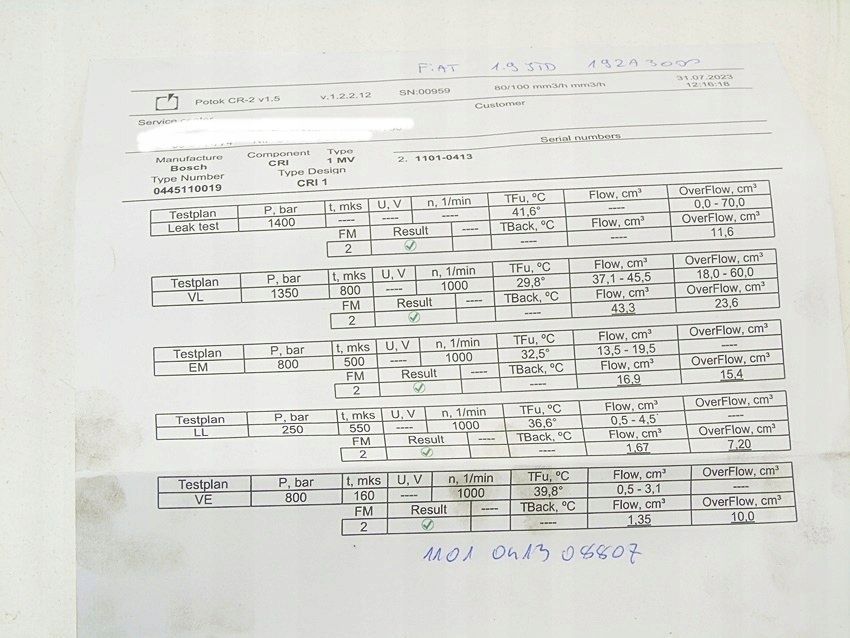 FiAT 1.9 JTD 192A3000
Potok CR-2 v1.5 v.1.2.2.12 SN:00959 80/100 mm3/h mm3/h 31.07.2023
12:16:18
Service Customer
Serial numbers
Manufacture Component Type
Bosch CRI 1 MV 2. 1101-0413
Type Number Type Design
0445110019 CRI 1
Testplan P, bar t, mks U, V n, 1/min TFu, ºC Flow, cm³ OverFlow, cm³
Leak test 1400 ---- ---- ---- 41,6° ---- 0,0 - 70,0
FM Result ---- TBack, ºC Flow, cm³ OverFlow, cm³
2 ---- ---- 11,6
Testplan P, bar t, mks U, V n, 1/min TFu, ºC Flow, cm³ OverFlow, cm³
VL 1350 800 ---- 1000 29,8° 37,1 - 45,5 18,0 - 60,0
FM Result ---- TBack, ºC Flow, cm³ OverFlow, cm³
2 ---- 43,3 23,6
Testplan P, bar t, mks U, V n, 1/min TFu, ºC Flow, cm³ OverFlow, cm³
EM 800 500 ---- 1000 32,5° 13,5 - 19,5 ----
FM Result ---- TBack, ºC Flow, cm³ OverFlow, cm³
2 ---- 16,9 15,4
Testplan P, bar t, mks U, V n, 1/min TFu, ºC Flow, cm³ OverFlow, cm³
LL 250 550 ---- 1000 36,6° 0,5 - 4,5 ----
FM Result ---- TBack, ºC Flow, cm³ OverFlow, cm³
2 ---- 1,67 7,20
Testplan P, bar t, mks U, V n, 1/min TFu, ºC Flow, cm³ OverFlow, cm³
VE 800 160 ---- 1000 39,8° 0,5 - 3,1 ----
FM Result ---- TBack, ºC Flow, cm³ OverFlow, cm³
2 ---- 1,35 10,0
1101 0413 08807